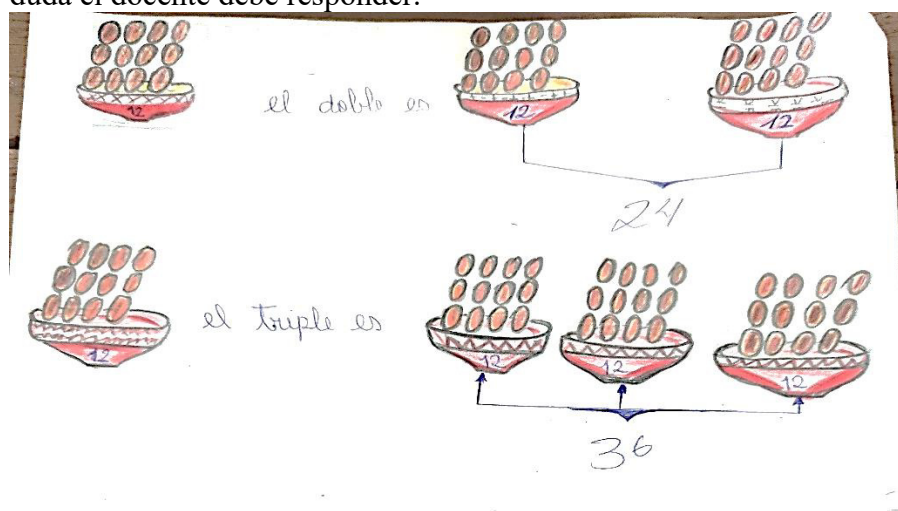 duda el docente debe responder.
12 el doble es 12 12
24
12 el triple es 12 12 12
36